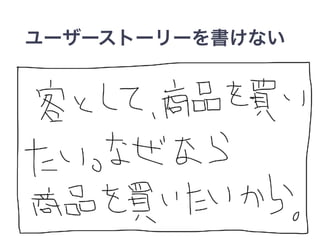 ユーザーストーリーを書けない
客として、商品を買い
たい。なぜなら
商品を買いたいから。